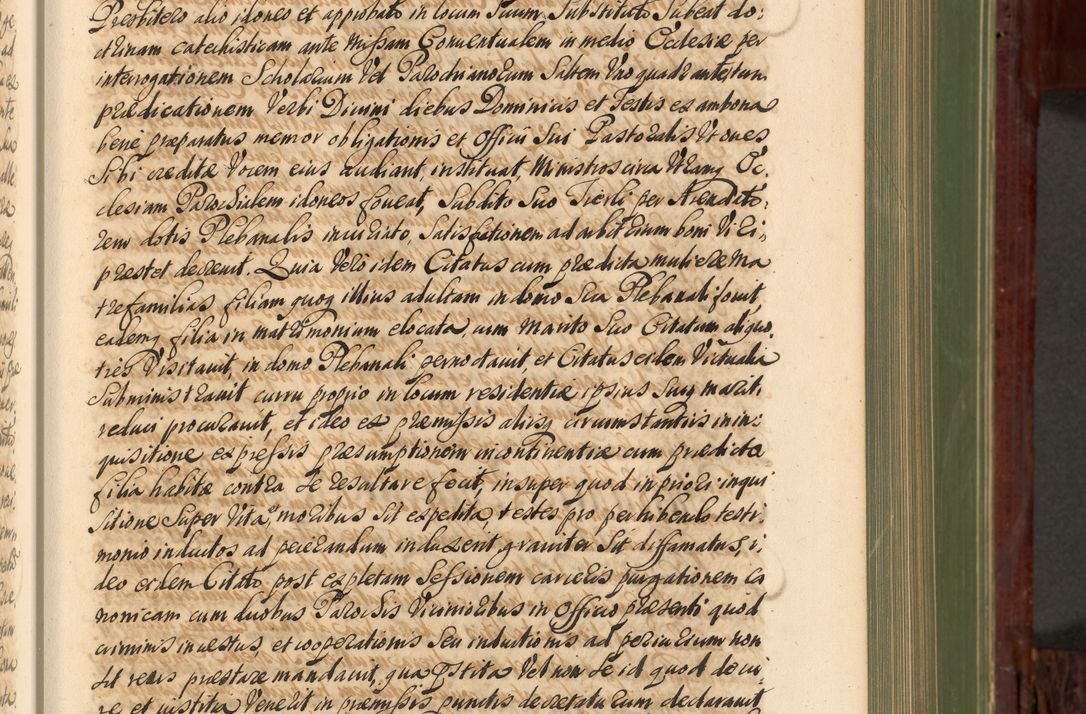 Presbitero alio idoneo et approbato in locum suum substituto subeat do:
ctrinam catechisticam ante Missam Conventualem in medio Ecclesiæ per
interrogationem Scholarium vel Parochianorum saltem uno quadrante, tum
prædicationem Verbi Divini diebus Dominicis et Festis ex ambona
bene præparatus memor obligationis et Officii sui Pastoralis ut oves
sibi creditæ vocem eius audiant, instituat, Ministros circa utramq Ec:
clesiam Parochialem idoneos foveat, Subdito suo per Arendato:
rem dotis Plebanalis iniuriato, satisfactionem ad arbitrium boni Viri,
præstet decrevit. Quia vero idem Citatus cum prædicta muliere Ma
trefamilias filiam quoq illius adultam in domo sua Plebanali fovit,
eademq filia in matrimonium elocata, cum marito suo Citatum aliquo:
ties visitavit, in domo Plebanali pernoctavit, et Citatus eidem victualia
subministravit curru proprio in locum residentiæ ipsius suiq mariti
reduci procuravit, et ideo ex præmissis aliisq circumstantiis in in:
quisitione expressis præsumptionem incontinentiæ cum prædicta
filia habitæ contra se resaltare fecit, insuper quod in priori inqui
sitione super vita, moribus sit expedita, testes pro perhibendo testi:
monio inductos ad peierandum induxerit, graviter sit diffamatus, i:
deo eidem Citato post expletam sessionem carceris purgationem ca
nonicam cum duobus Parochis vicinioribus in Officio præsenti quod
criminis incestus, et cooperationis seu inductionis ad periurium non
sit reus præstare mandavit, qua præstita vel non se id quod de iu:
re et iustitia venerit in præmissis punctis decretaturum declaravit